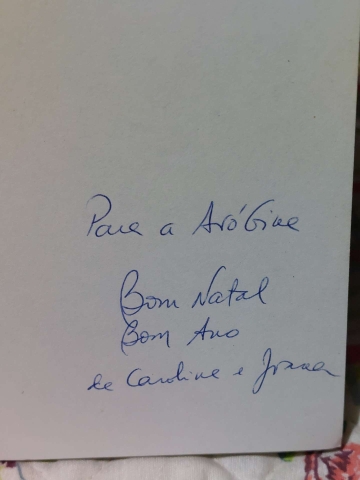 Para a Avó Gina
Bom Natal
Bom Ano
de Caroline e Joana